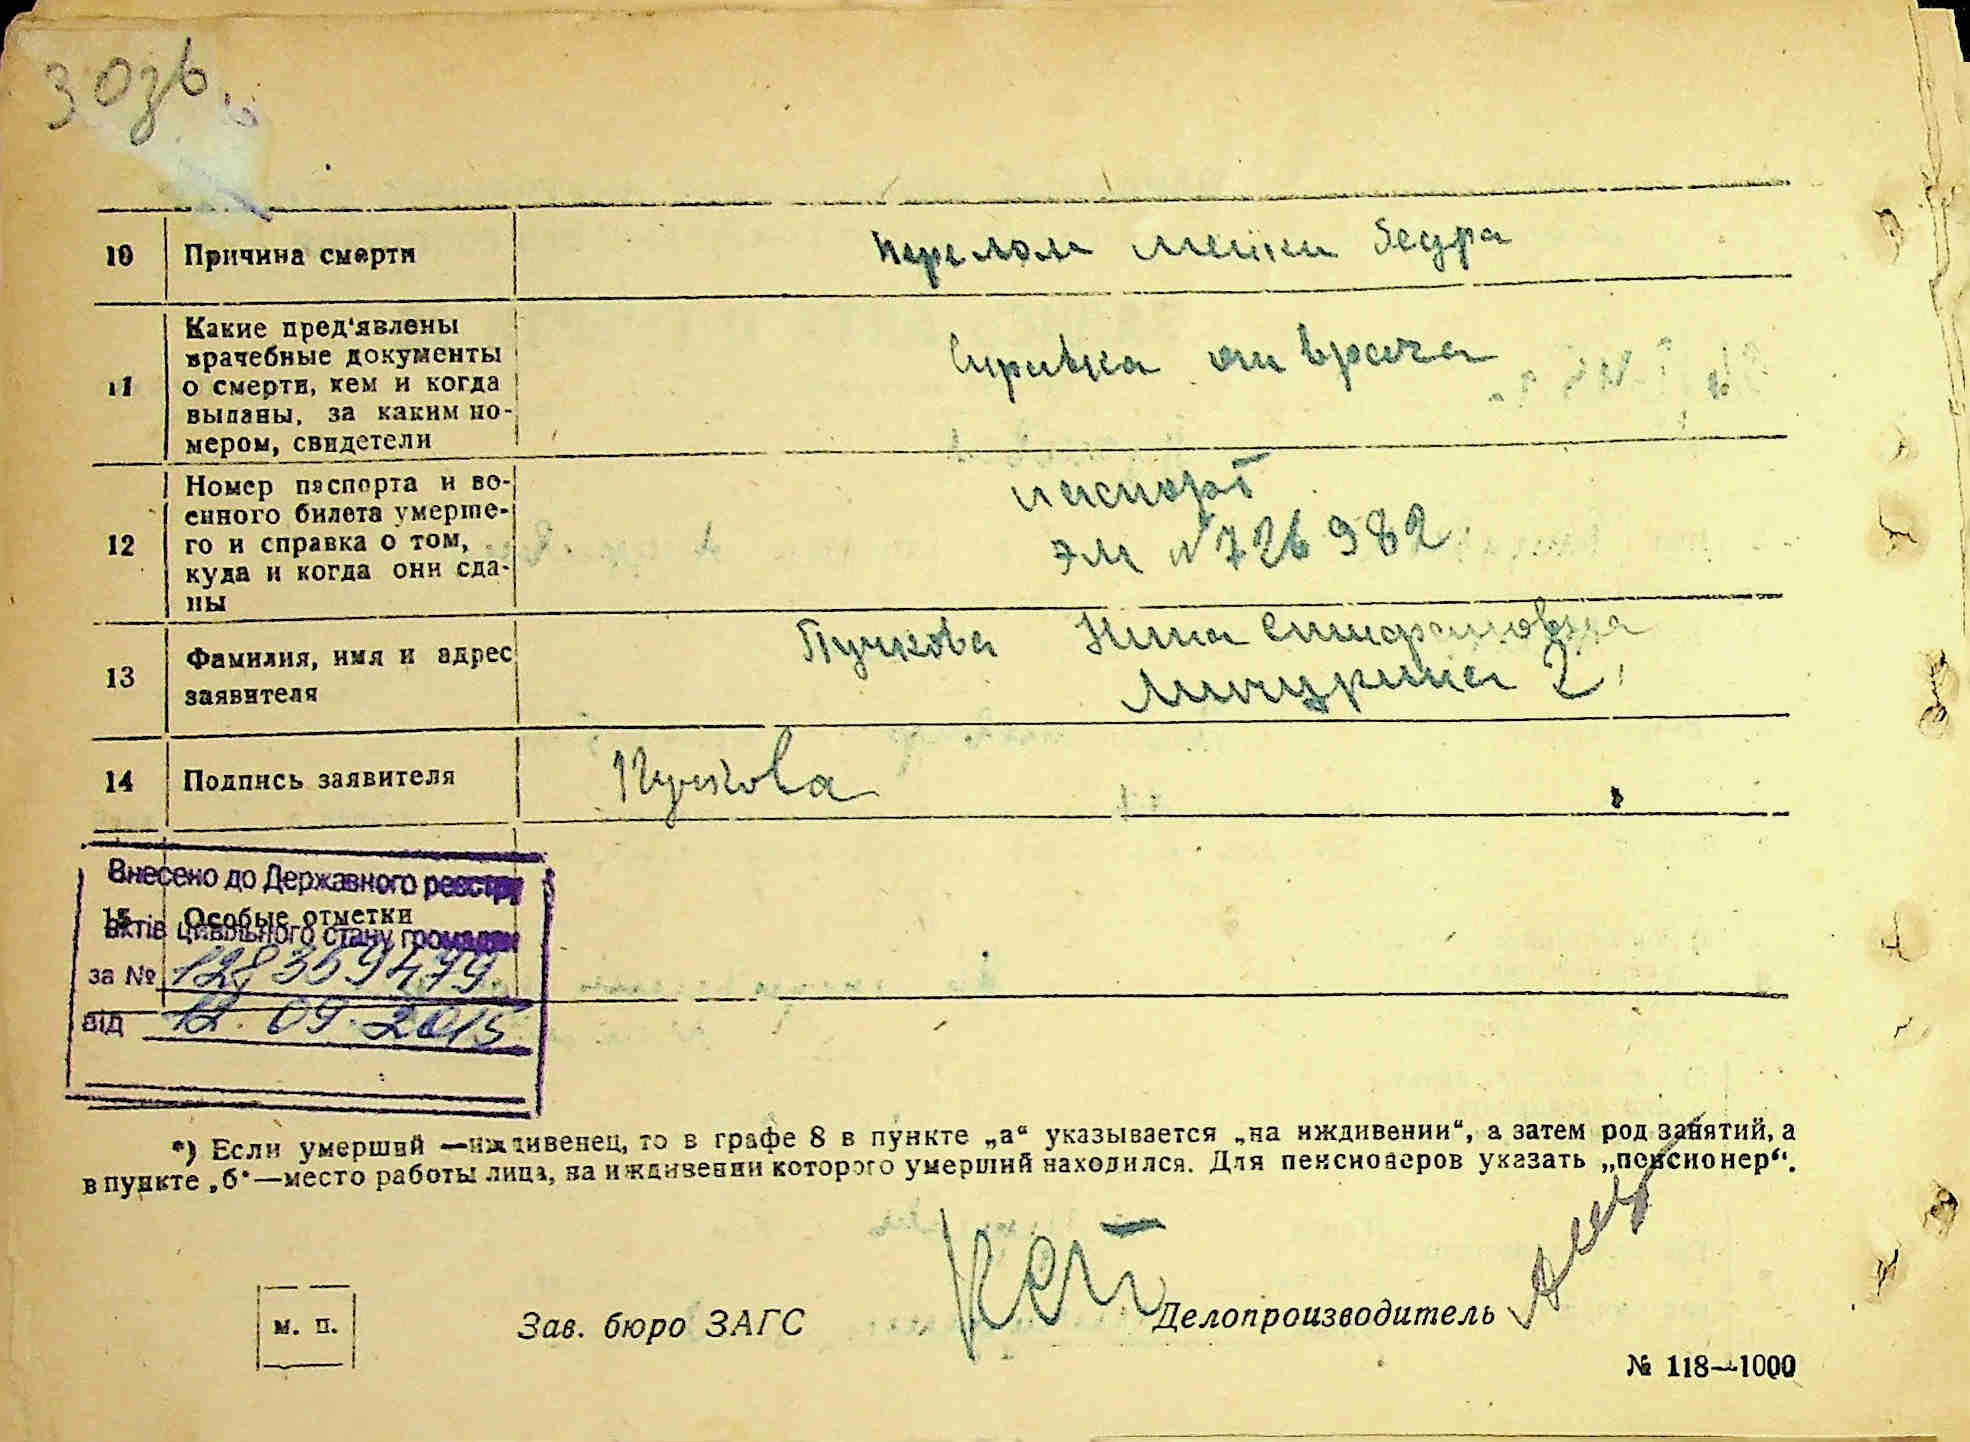 10 Причина смерти перелом шейки бедра
11 Какие пред'явлены
врачебные документы
о смерти, кем и когда
выданы, за каким но-
мером, свидетели
Справка от врача
12 Номер паспорта и во-
енного билета умерше-
го и справка о том,
куда и когда они сда-
ны
паспорт
ЭМ №726982
13 Фамилия, имя и адрес
заявителя
Пучкова Нина
Мичурина 2
14 Подпись заявителя Пучкова
Внесено до Державного реєстру
15 Особые отметки
актів цивільного стану громадян
за № 128359479
від 12.09.2015
*) Если умерший —иждивенец, то в графе 8 в пункте „а“ указывается „на иждивении“, а затем род занятий, а
в пункте „б“—место работы лица, на иждивении которого умерший находился. Для пенсионеров указать „пенсионер“.
м. п. Зав. бюро ЗАГС Делопроизводитель
№ 118—1000